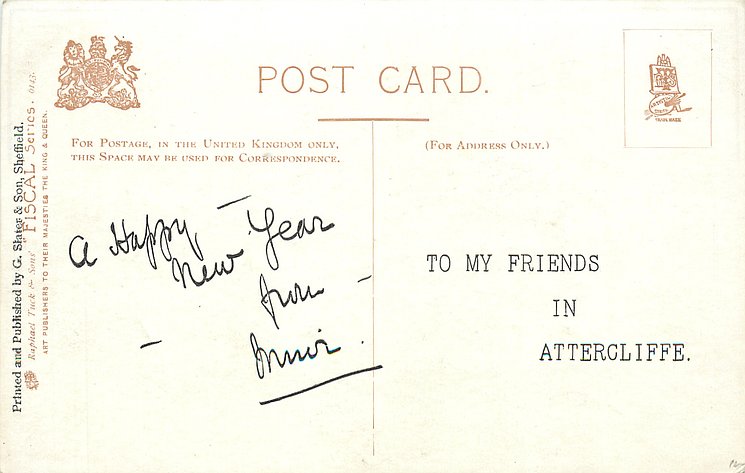 POST CARD.
FOR POSTAGE, IN THE UNITED KINGDOM ONLY,
THIS SPACE MAY BE USED FOR CORRESPONDENCE.
(FOR ADDRESS ONLY.)
Printed and Published by G. Slater & Son, Sheffield.
Raphael Tuck & Sons' "FISCAL Series.
ART PUBLISHERS TO THEIR MAJESTIES THE KING & QUEEN.
A Happy
New Year
from
TO MY FRIENDS
IN
ATTERCLIFFE.
TRADE MARK